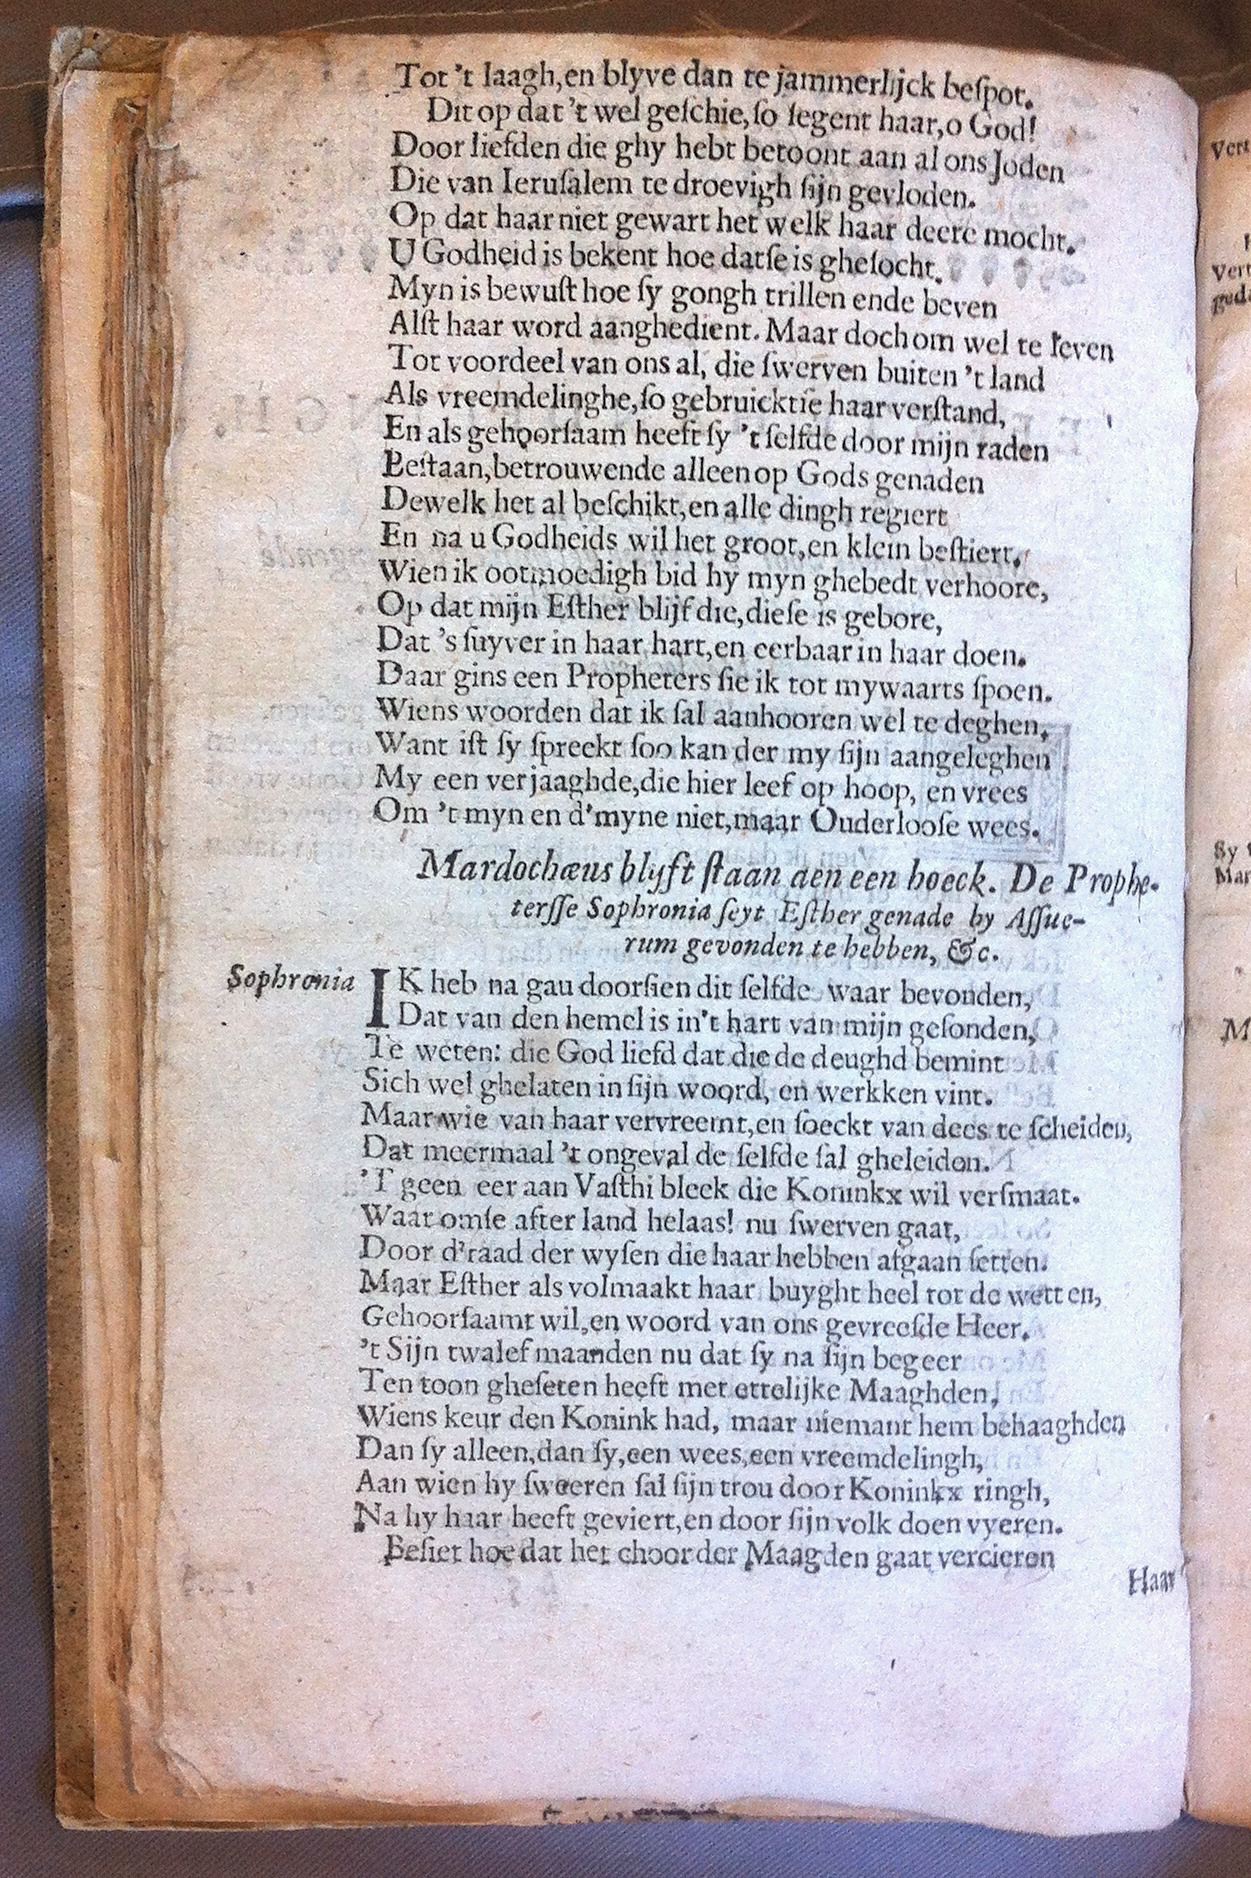 Tot 't laagh, en blyve dan te jammerlijck beſpot.
Dit op dat 't wel geſchie, ſo ſegent haar, o God!
Door liefden die ghy hebt betoont aan al ons Joden
Die van Ieruſalem te droevigh ſijn gevloden.
Op dat haar niet gewart het welk haar deere mocht.
U Godheid is bekent hoe datſe is gheſocht.
Myn is bewuſt hoe ſy gongh trillen ende beven
Alſt haar word aanghedient. Maar doch om wel te leven
Tot voordeel van ons al, die ſwerven buiten 't land
Als vreemdelinghe, ſo gebruicktſe haar verſtand,
En als gehoorſaam heeft ſy 't ſelfde door mijn raden
Beſtaan, betrouwende alleen op Gods genaden
Dewelk het al beſchikt, en alle dingh regiert
En na u Godheids wil het groot, en klein beſtiert.
Wien ik ootmoedigh bid hy myn ghebedt verhoore,
Op dat mijn Eſther blijf die, dieſe is gebore,
Dat 's ſuyver in haar hart, en eerbaar in haar doen.
Daar gins een Propheters ſie ik tot mywaarts ſpoen.
Wiens woorden dat ik ſal aanhooren wel te deghen,
Want iſt ſy ſpreekt ſoo kan der my ſijn aangeleghen
My een verjaaghde, die hier leef op hoop, en vrees
Om 't myn en d'myne niet, maar Ouderlooſe wees.
Mardochæus blyft ſtaan aen een hoeck. De Prophe-
terſſe Sophronia ſeyt Eſther genade by Aſſue-
rum gevonden te hebben, &c.
Sophronia IK heb na gau doorſien dit ſelfde waar bevonden,
Dat van den hemel is in't hart van mijn geſonden,
Te weten: die God liefd dat die de deughd bemint
Sich wel ghelaten in ſijn woord, en werkken vint.
Maar wie van haar vervreemt, en ſoeckt van dees te ſcheiden,
Dat meermaal 't ongeval de ſelfde ſal gheleiden.
'T geen eer aan Vaſthi bleek die Koninkx wil verſmaat.
Waar omſe after land helaas! nu ſwerven gaat,
Door d'raad der wyſen die haar hebben afgaan ſetten.
Maar Eſther als volmaakt haar buyght heel tot de wetten,
Gehoorſaamt wil, en woord van ons gevreeſde Heer.
't Sijn twalef maanden nu dat ſy na ſijn begeer
Ten toon gheſeten heeft met ettelijke Maaghden,
Wiens keur den Konink had, maar niemant hem behaaghden
Dan ſy alleen, dan ſy, een wees, een vreemdelingh,
Aan wien hy ſweeren ſal ſijn trou door Koninkx ringh,
Na hy haar heeft geviert, en door ſijn volk doen vyeren.
Beſiet hoe dat het choor der Maagden gaat vercieren
Haar